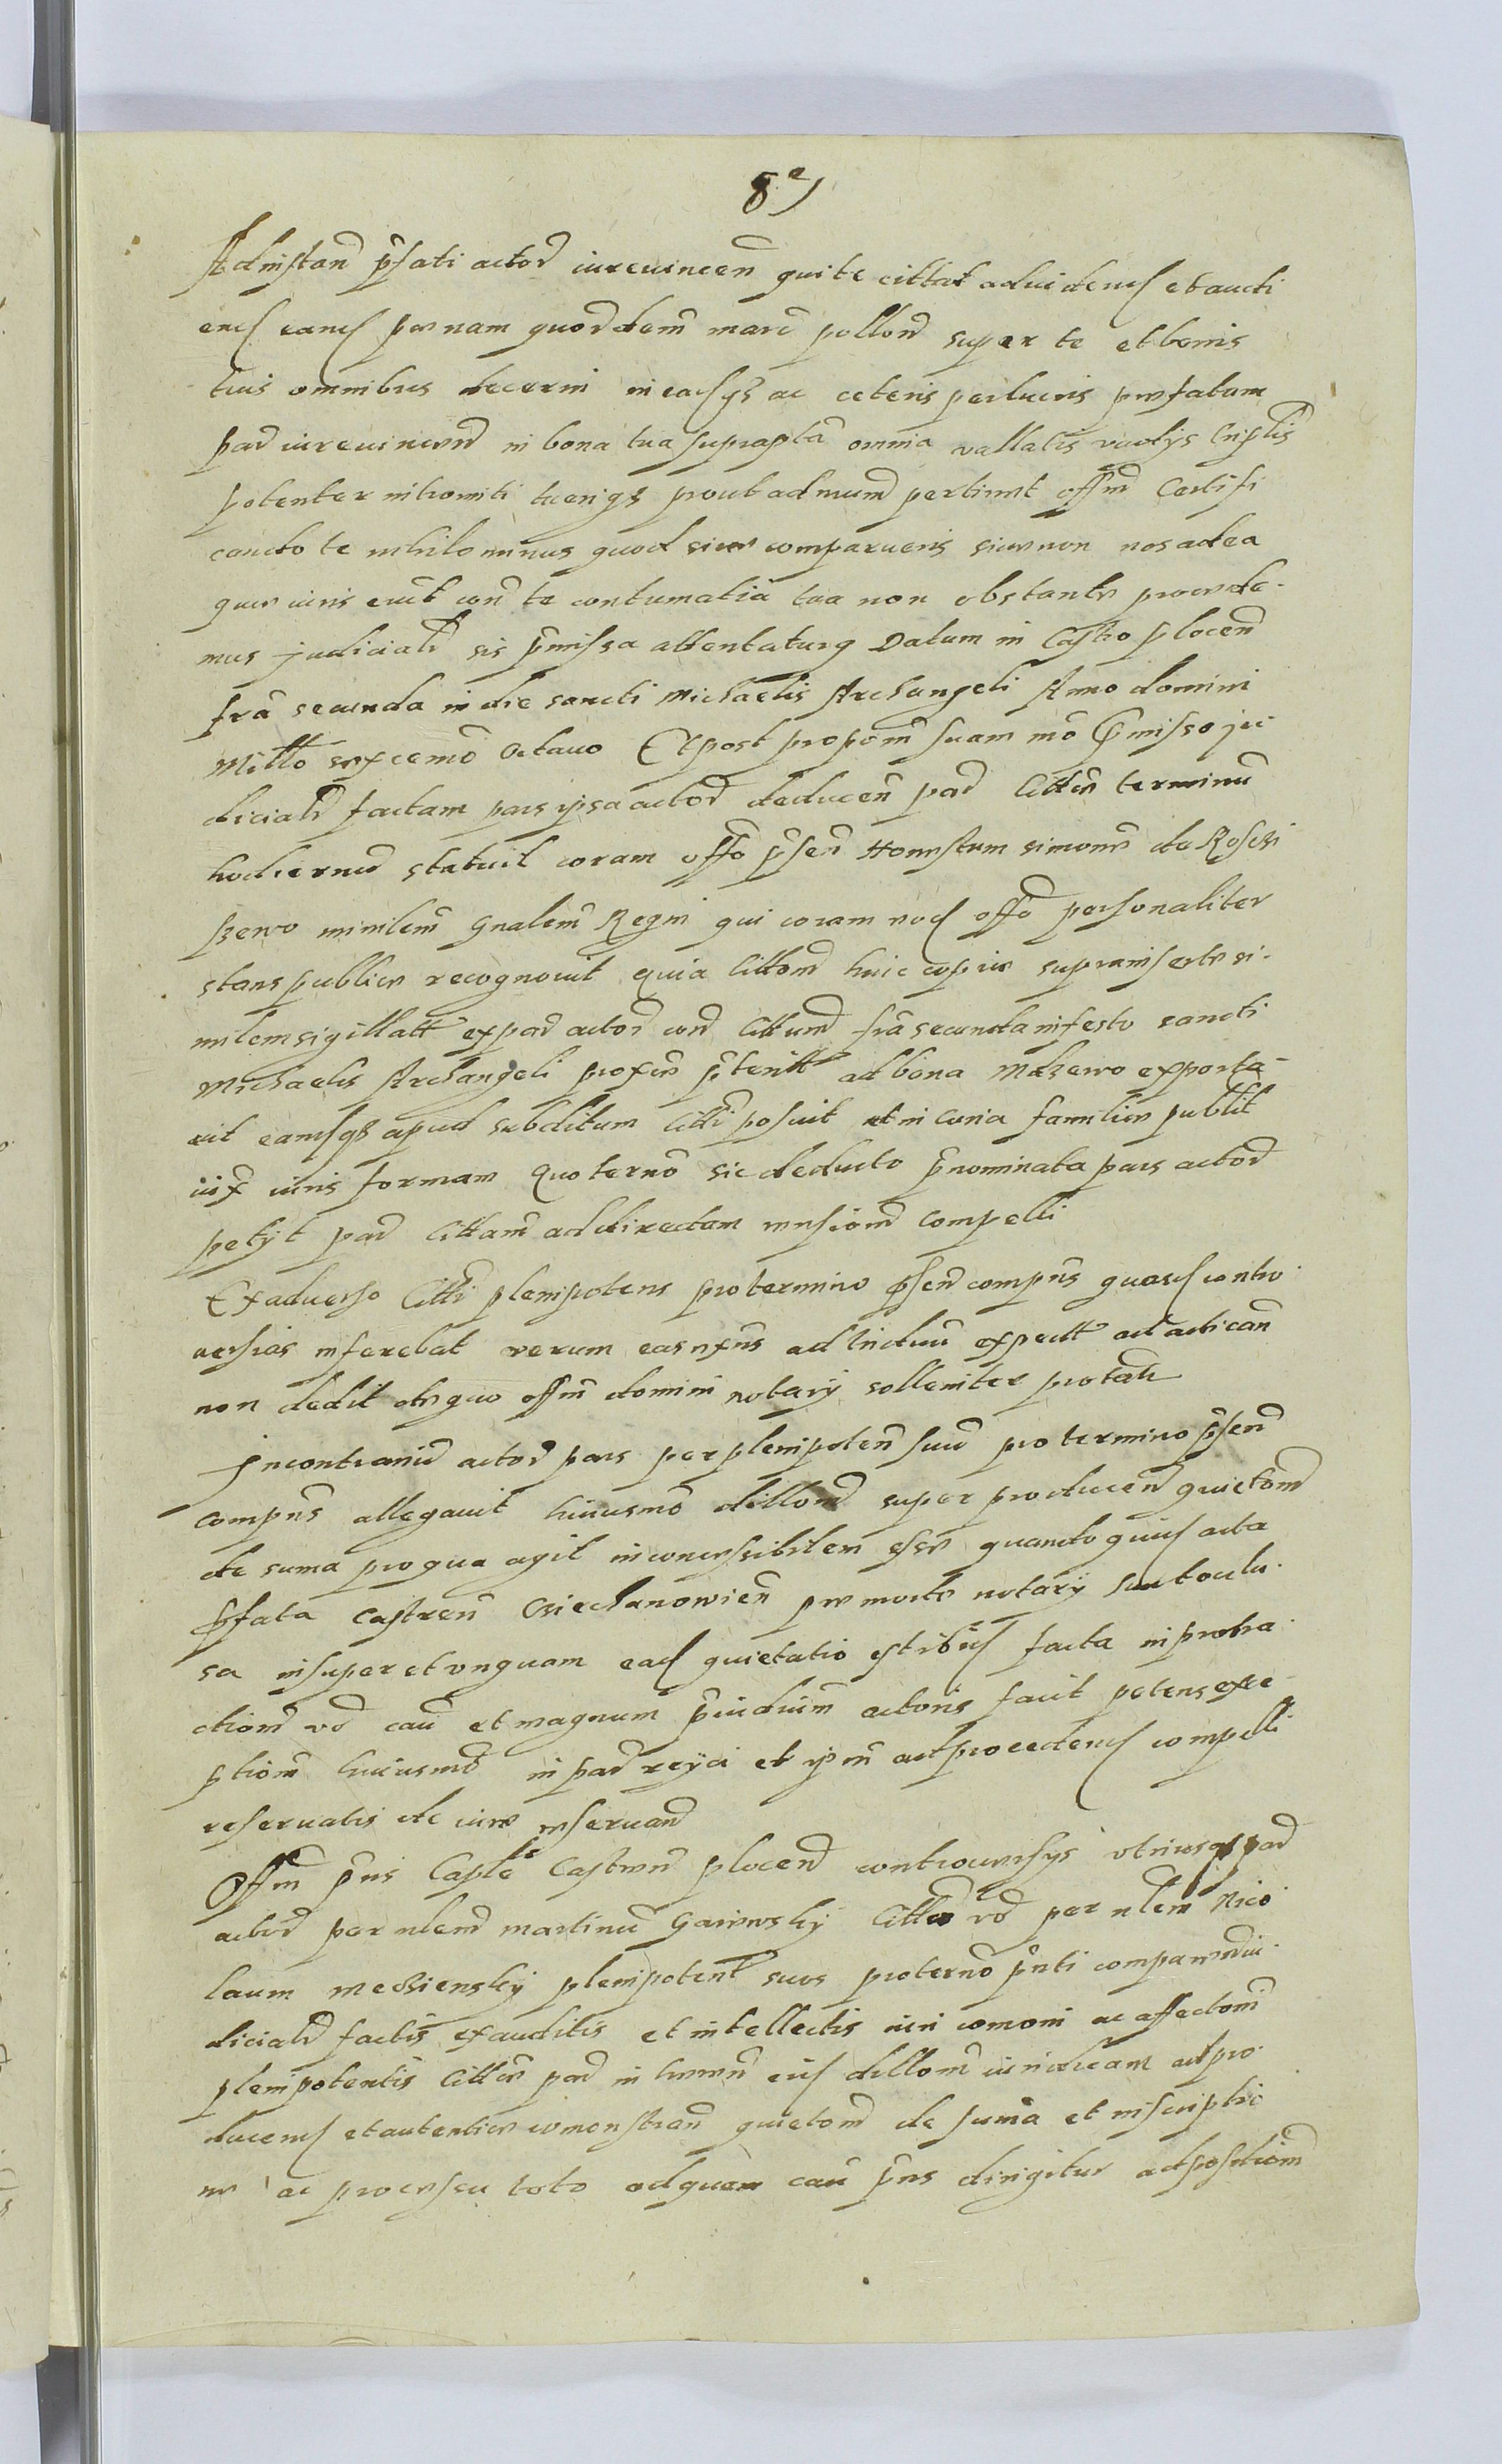 8
Ad instan p̃sati actor̃ iurevincen̄ qui te cittat ad videnđ et audi
enđ eanđ poenam quor̃ dem̃ marc̃ pollon̄ super te et bonis
tuis omnibus decerni in easqз ac ceteris perlucris praefatam
par̃ iurevincen̄ in bona tua suprapta omnia vallatis vadys triplis
potenter intromitti tueriqз prout ad nrum̃ pertinet offm̃ Certifi
cando te nihilominus quod sive comparueris sive non nos ad ea
quae iuris erũt con̄ te contumatia tua non obstante procede-
mus judicialr̃ sis p̃missa attentaturg Datum in Castro plocen̄
fr̃a secunda in die sancti Michaelis Archangeli Anno domini
Millo sexcemo Octavo Et post propom̃ suam mo p̃misso ju-
dicialr̃ factam pars ipsa actor̃ deducen̄ par̃ Citten̄ terminũ
hodiernũ statuit coram offo p̃sen̄ Honestum simone de Rosczi
szewo minilem̃ Gnalem̃ Regni qui coram nođ offo personaliter
stans publice recognovit quia Cittom̃ huic copiae suprainsertae si-
milem sigillatt ex par̃ actor̃ con̄ Cittum̃ fr̃a secunda in festo sancti
Michaelis Archangeli proxim̃ p̃teritt ad bona Mdzewo exporta-
vit eamsqз apud subditum Citti posuit et in curia familiae publit
iux iuris formam Quo term̃o sic deducto p̃nominata pars actor̃
petyt par̃ Cittam̃ ad directam responsiom̃ compelli
Ex adverso Citti plenipotens pro termino p̃sen̄ compn̄s quasđ contro-
versias inferebat verum eas nfns ad triduũ expectt ad actican̄
non dedit de quo offm̃ domini notary solleniter protatr
Jn contrariũ actor̃ pars per plenipoten̄ suũ pro termino p̃sen̄
compn̄s allegavit huiusmo dillom̃ super producen̄ quietom̃
de suma pro qua agit inconcessibilem esse quando quid acta
p̃fata Castren̄ Cziechanowien̄ prae morte notary sunt oclu-
sa insuper et unquam eađ quietatio est ibid facta in protra-
ctiom̃ vo cau et magnum p̃iudium̃ actoris facit petens exce-
ptiom̃ huiusmo in par̃ reyci et ipm̃ ad procedenđ compelli
reservatis de iure reservan̄
Offm̃ p̃ns Caple Castren̄ plocen̄ controversys utriusqз par̃
actor̃ per nlem̃ martinũ Gaiewsky Citten vo per nlem̃ Nico
laum Mecziensky plenipotent suos pro term̃o p̃nti comparen̄ iu-
dicialr̃ factis exauditis et intellectis iuri comoni ac affectom̃
plenipotentis Citten par̃ in haeren̄ eiđ dillom̃ iuridicam ad pro-
ducenđ et autentice comonstran̄ quietom̃ de suma et inscriptio
ne ac processu toto ad quam cau p̃ns dirigitur ad positiom̃